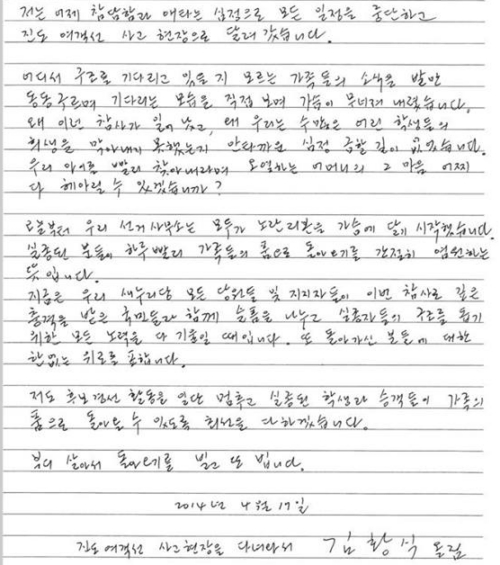 저는 어제 참담함과 애타는 심정으로 모든 일정을 중단하고
진도 여객선 사고 현장으로 달려 갔습니다.
어디서 구조를 기다리고 있을 지 모르는 가족들의 소식을 발만
동동구르며 기다리는 모습을 직접 보며 가슴이 무너져 내렸습니다.
왜 이런 참사가 일어 났고, 왜 우리는 수많은 어린 학생들의
희생을 막아내지 못했는지 안타까운 심정 금할 길이 없었습니다.
우리 아이를 빨리 찾아내라며 오열하는 어머니의 그 마음 어찌
다 헤아릴 수 있겠습니까?
오늘부터 우리 선거사무소는 모두가 노란리본을 가슴에 달기 시작했습니다.
실종된 분들이 하루 빨리 가족들의 품으로 돌아오기를 간절히 염원하는
뜻입니다.
지금은 우리 새누리당 모든 당원들 및 지지자들이 이번 참사로 깊은
충격을 받은 국민들과 함께 슬픔을 나누고 실종자들의 구조를 돕기
위한 모든 노력을 다 기울일 때입니다. 또 돌아가신 분들에 대한
한없는 위로를 표합니다.
저도 후보경선 활동을 일단 멈추고 실종된 학생과 승객들이 가족의
품으로 돌아올 수 있도록 최선을 다하겠습니다.
부디 살아서 돌아오기를 빌고 또 빕니다.
2014년 4월 17일
진도여객선 사고현장을 다녀와서 김황식 올림